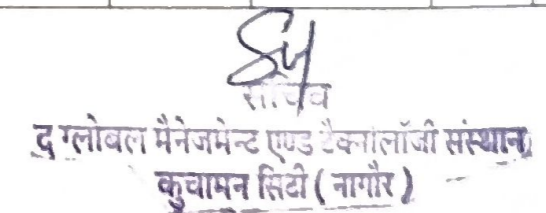 सचिव
द ग्लोबल मैनेजमेन्ट एण्ड टैक्नालॉजी संस्थान
कुचामन सिटी ( नागौर )